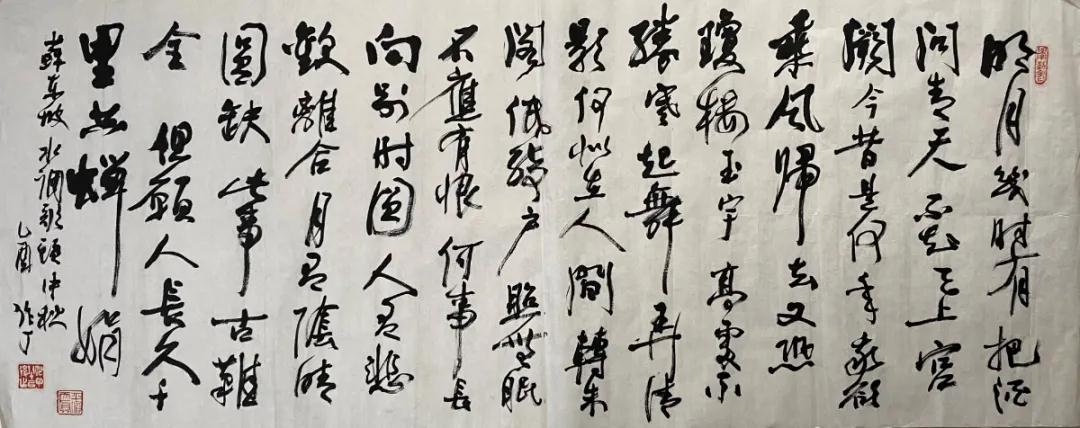 明月幾时有把酒
问青天不知天上宫
闕今昔是何年我欲
乘风歸去又恐
瓊楼玉宇高處不
勝寒起舞弄清
影何似在人間轉朱
阁低绮户照無眠
不應有恨何事长
向别时圆人有悲
歡離合月有陰晴
圓缺此事古難
全但願人長久千
里共嬋娟
蘇东坡水调歌頭中秋
乙酉